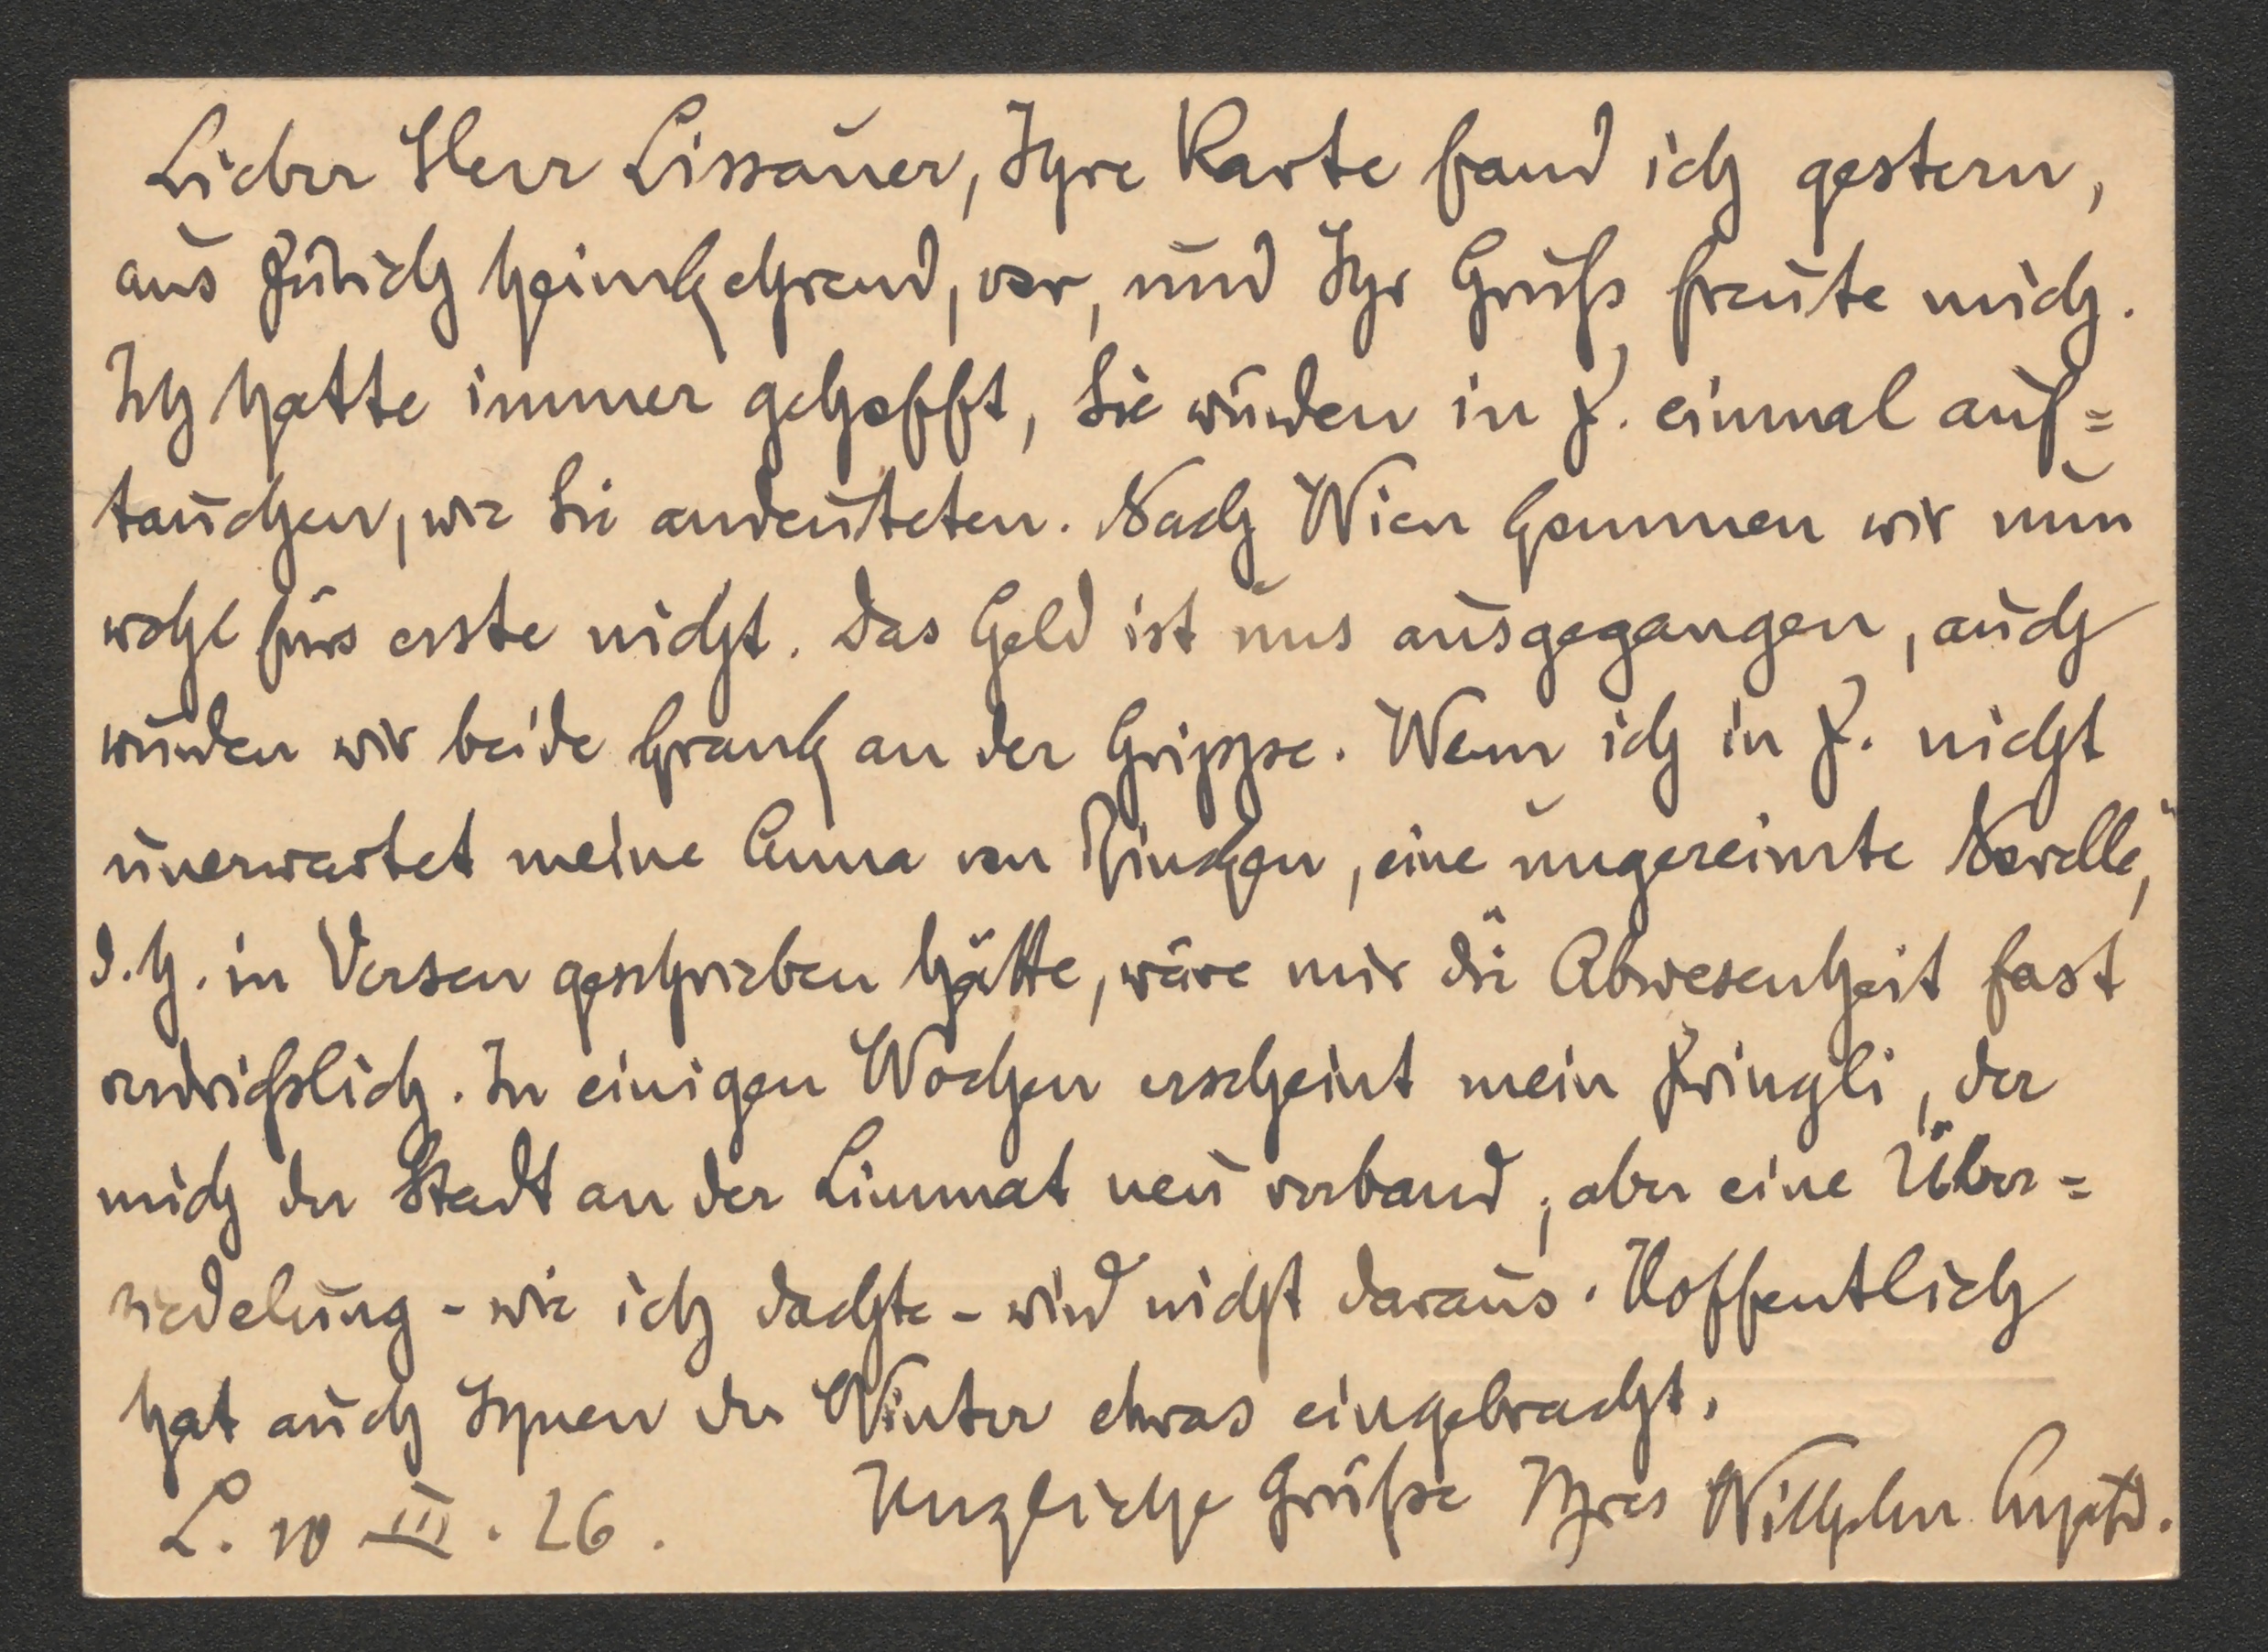 Lieber Herr Lissauer, Ihre Karte fand ich gestern,
aus Zürich heimkehrend, vor, und Ihr Gruß freute mich.
Ich hatte immer gehofft, Sie würden in Z. einmal auf=
tauchen, wie Sie andeuteten. Nach Wien kommen wir nun
wohl fürs erste nicht. Das Geld ist uns ausgegangen, auch
wurden wir beide krank an der Grippe. Wenn ich in Z. nicht
unerwartet meine Anna von, eine ungereimte Novelle,"
d.h. in Versen geschrieben hätte, wäre mir die Abwesenheit fast
verdrießlich. In einigen Wochen erscheint mein Zwingli, der
mich der Stadt an der Limmat neu verband; aber eine Über=
siedelung - wie ich dachte - wird nicht daraus. Hoffentlich
hat auch Ihnen der Winter etwas eingebracht.
L. 10 III. 26. Herzliche Grüße Ihres Wilhelm